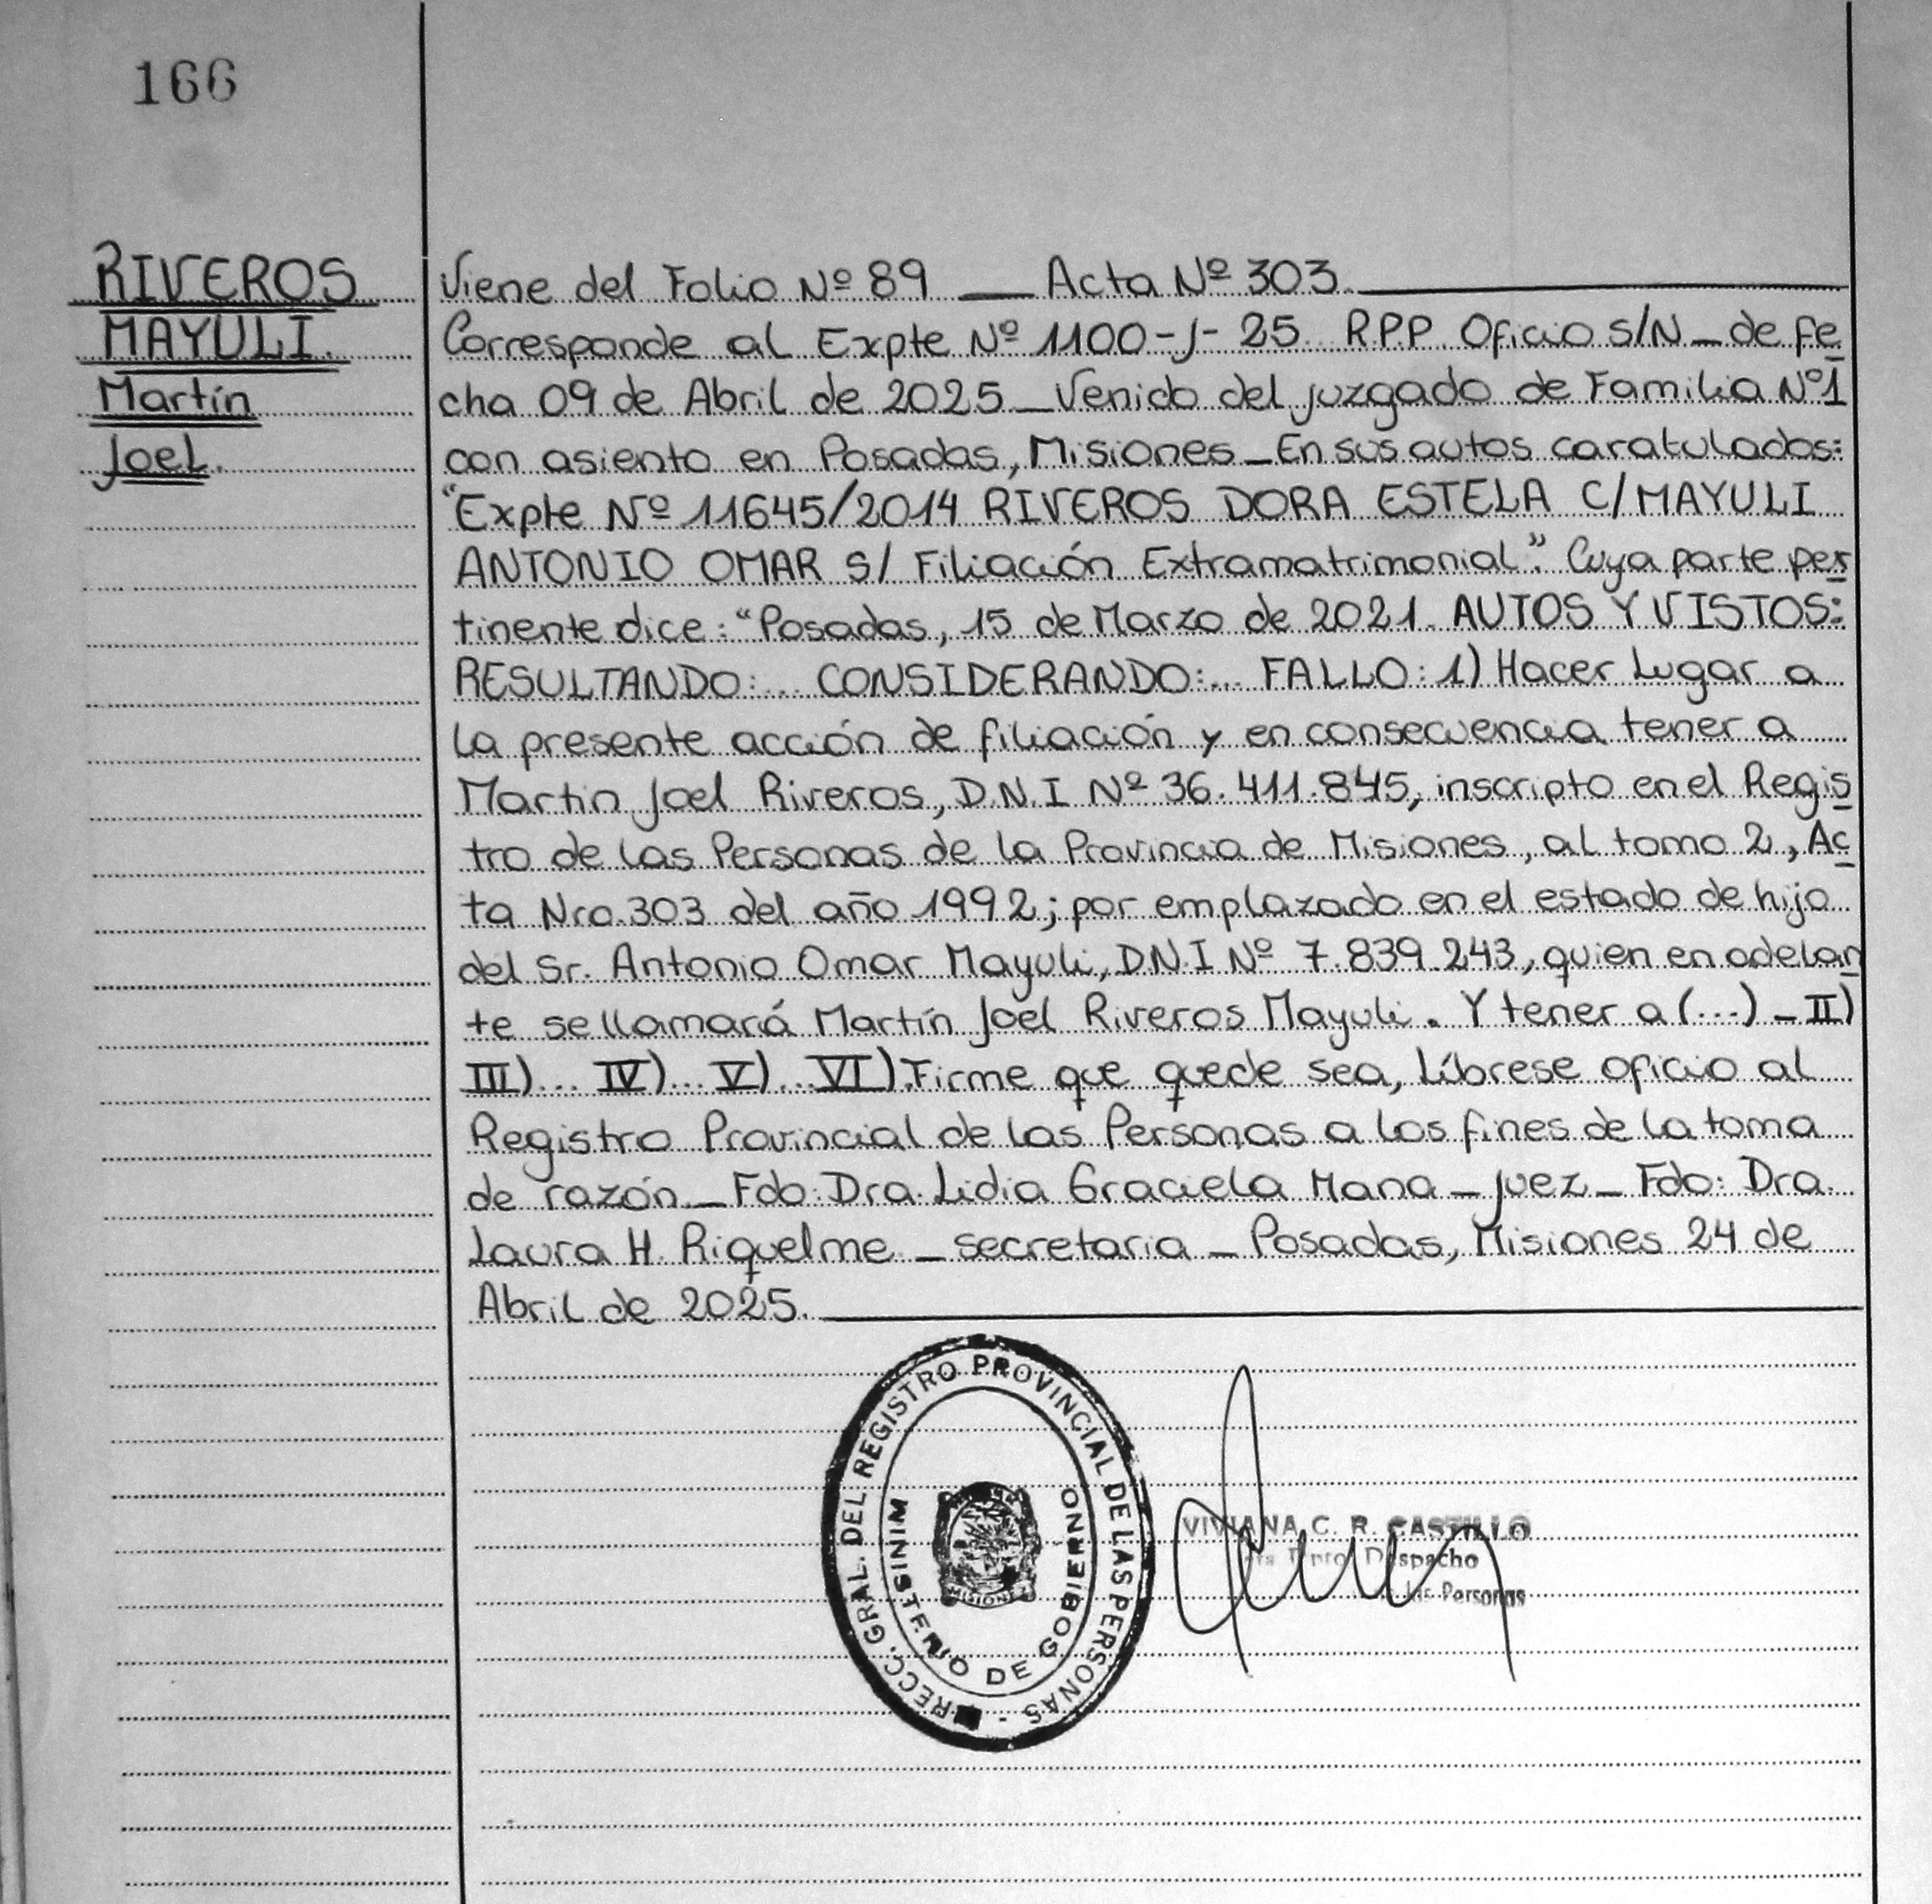 166
RIVEROS
MAYULI.
Martín
Joel.
Viene del Folio Nº 89 __ Acta Nº 303.
Corresponde al Expte Nº 1100-J-25. R.P.P. Oficio S/N _ de fe
cha 09 de Abril de 2025 _ Venido del juzgado de Familia Nº1
con asiento en Posadas, Misiones _ En sus autos caratulados:
"Expte Nº 11645/2014 RIVEROS DORA ESTELA C/ MAYULI
ANTONIO OMAR S/ Filiación Extramatrimonial". Cuya parte per
tinente dice: "Posadas, 15 de Marzo de 2021. AUTOS Y VISTOS:
RESULTANDO:... CONSIDERANDO:... FALLO: 1) Hacer Lugar a
la presente acción de filiación y en consecuencia tener a
Martin Joel Riveros, D.N.I Nº 36.411.845, inscripto en el Regis
tro de las Personas de la Provincia de Misiones, al tomo 2, Ac
ta Nro.303 del año 1992; por emplazado en el estado de hijo
del Sr. Antonio Omar Mayuli, D.N.I Nº 7.839.243, quien en adelan
te se llamará Martín Joel Riveros Mayuli. Y tener a (...) _ II)
III)... IV)... V)... VI). Firme que quede sea, Líbrese oficio al
Registro Provincial de las Personas a los fines de la toma
de razón _ Fdo: Dra. Lidia Graciela Mana _ juez _ Fdo: Dra.
Laura H. Riquelme _ secretaria _ Posadas, Misiones 24 de
Abril de 2025.
RECC. GRAL. DEL REGISTRO PROVINCIAL DE LAS PERSONAS -
MINISTERIO DE GOBIERNO
MISIONES
VIVIANA C. R. CASTILLO
Despacho
las Personas